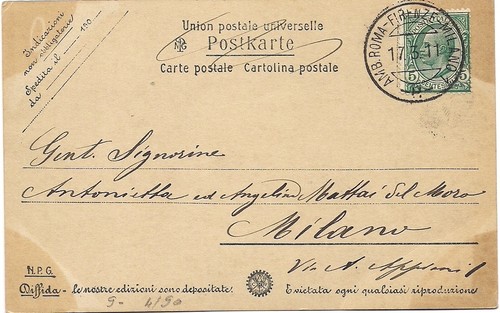 Indicazioni
non obbligatorie
Spedita il 190
da
Union postale universelle
Postkarte
Carte postale Cartolina postale
AMB. ROMA-FIRENZE-MILANO
17.3.11
5 5
Gent. Signorine
Antonietta ed Angelina Mattai Del Moro
Milano
Via A. Appiani 1
N.P.G.
Diffida - le nostre edizioni sono depositate. E vietata ogni qualsiasi riproduzione